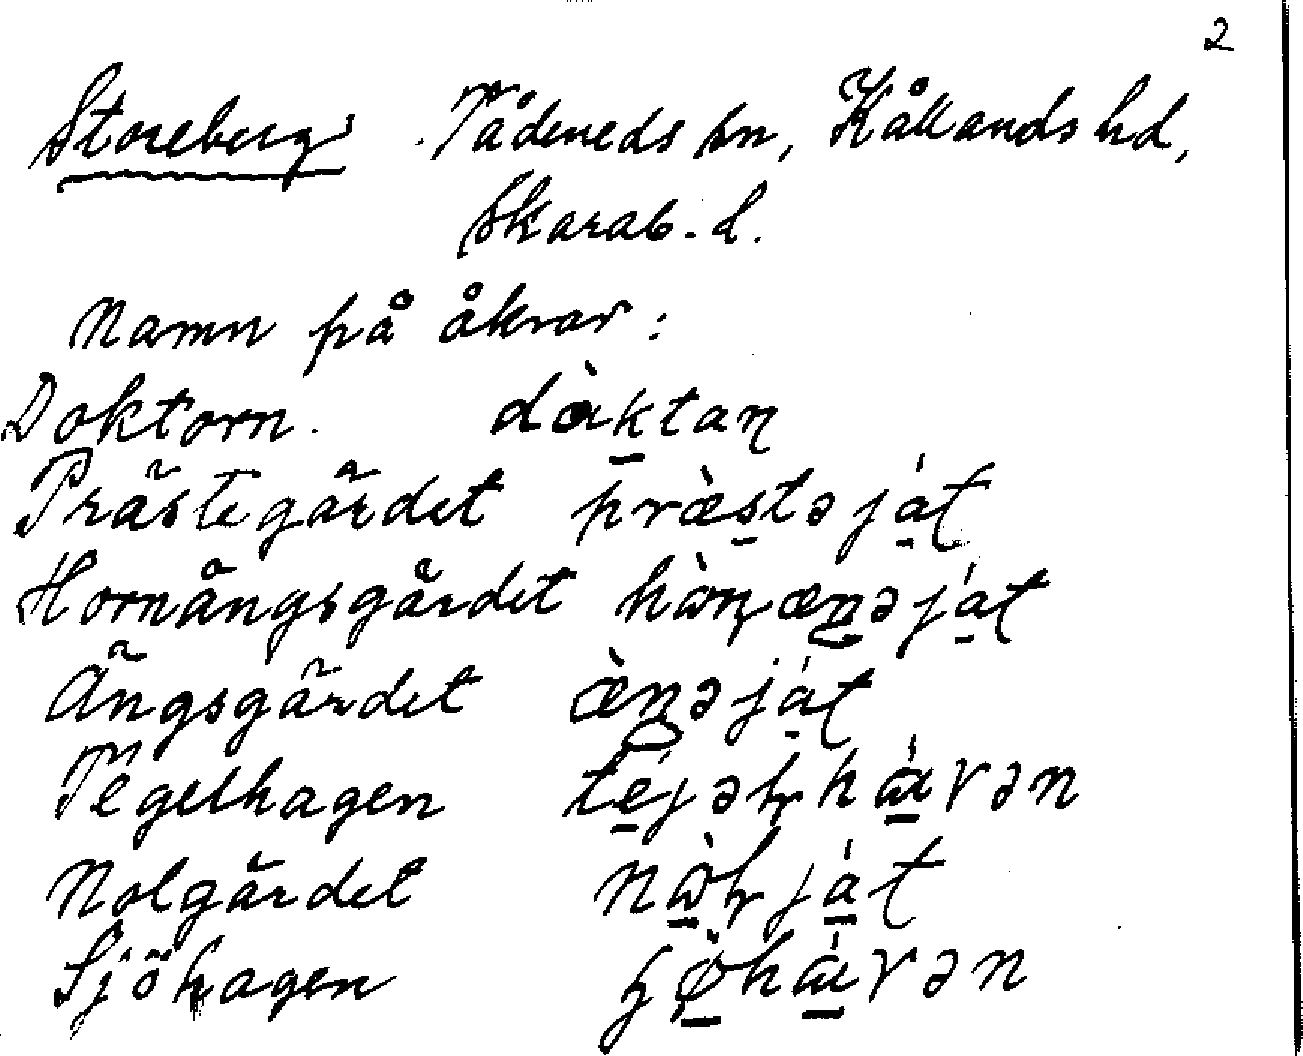 2
Storeberg Tådeneds sn, Kållands hd,
Skarab. l.
Namn på åkrar:
Doktorn. dàktaɳ
Prästegärdet præ̀stəját
Hornängsgärdet hɷ̀ɳæŋəját
Ängsgärdet æ̀ŋəját
Tegelhagen téjəɽhávən
Nolgärdet nɷ̀ɽját
Sjöhagen ʂø̀háɣən